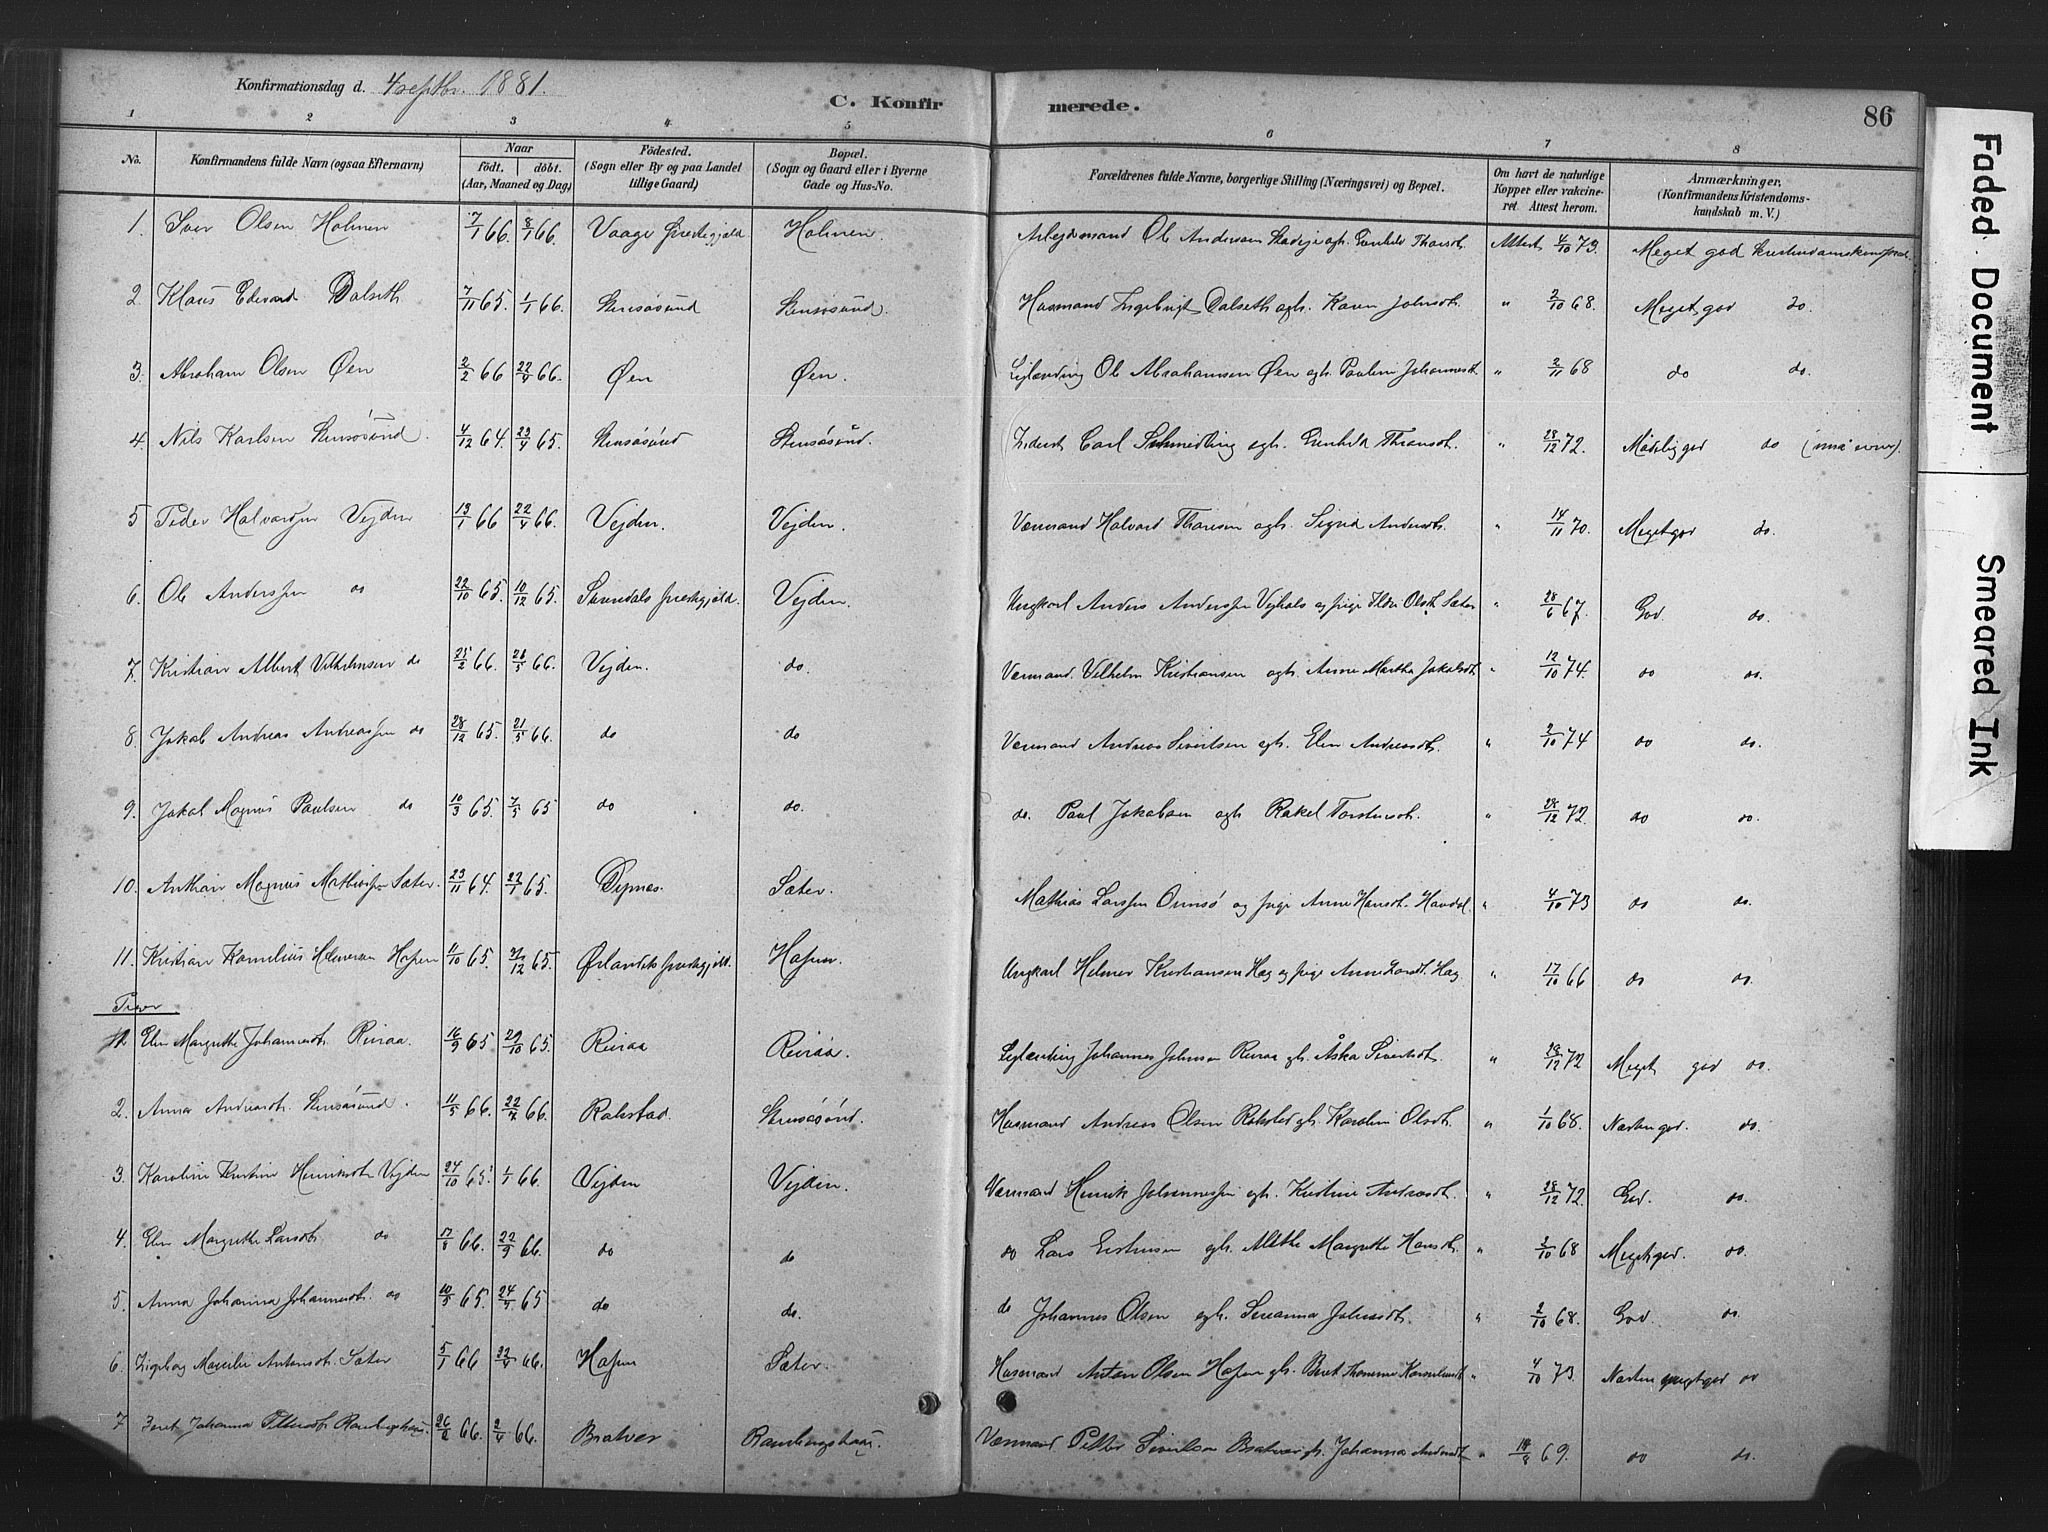 Konfirmationsdag d. 4 septbr. 1881.
C. Konfirmerede.
86
1 2 3 4 5 6 7 8
No. Konfirmandens fulde Navn (ogsaa Efternavn) Naar födt. döbt. (Aar, Maaned og Dag) Födested. (Sogn eller By og paa Landet tillige Gaard) Bopæl. (Sogn og Gaard eller i Byerne Gade og Hus-No. Forældrenes fulde Navne, borgerlige Stilling (Næringsvei) og Bopæl. Om havt de naturlige Kopper eller vakcineret. Attest herom. Anmærkninger. (Konfirmandens Kristendomskundskab m. V.)
1. Iver Olsen Holmen 7/1 66. 8/1 66. Vaage præstegjeld Holmen. Arbejdsmand Ole Andersen Gunhild Attest 4/10 73. Meget god
2. Klaus Edvard Dalseth 7/11 65. 1/1 66. Stensøsund Stensøsund. Husmand Ingebrigt Dalseth og h. Karen Johnsdt. " 2/10 68. Meget god do.
3. Abraham Olsen Øen 2/2 66 22/4 66. Øen Øen. Ole Abrahamsen Øen og h. Pauline Johannesdt. " 2/11 68 do do.
4. Nils Karlsen Stensøsund. 4/12 64. 23/4 65. Stensøsund Stensøsund. Inderst Carl Schmedling og h. Gunhild " 28/12 72. Mådelig god do
5 Peder Halvorsen Vejden 13/1 66 22/4 66. Vejden. Vejden. Værmand Halvard Thoresen og h. Sigrid Andersdt. " 14/11 70. Meget god do.
6. Ole Anderssen do 22/10 65. 10/12 65. Sundals præstegjeld. Vejden. Ungkarl Anders Anderssen og pige Ildri Olsdt. Sæter " 28/6 67. God do.
7. Kristian Albert Vilhelmsen do 25/2 66. 20/5 66. Vejden. do. Værmand. Vilhelm Kristiansen og h. Anne Martha Jakobsdt. " 12/10 74. do do.
8. Jakob Andreas Andreassen do 28/12 65. 21/5 66. do do Værmand Andreas Sivertsen og h. Elen Andreasdt. " 2/10 74 do do.
9. Jakob Magnus Paulsen do 10/3 65. 7/5 65 do do. do. Paul Jakobsen og h. Rakel Torstensdt. " 28/12 72. do do.
10. Anthon Magnus Mathiassen Sæter. 23/11 64. 22/1 65. Dyrnes. Sæter. Mathias Larssen Ormsø og pige Anne Hansdt. " 4/10 73 do do.
11. Kristian Kornelius Helmersen Hofsen 11/10 65. /12 65. Ørlandets præstegjeld. Hofsen. Ungkarl Helmer Kristiansen Hag og pige Anne Larsdt. Hag " 17/10 66 do do.
Piger.
1. Elen Margrethe Johannesdt. Reiraa. 16/9 65 29/10 65. Reiraa Reiraa. Johannes Johnsen Reiraa og h. Sivertsdt. " 28/12 72 Meget god do.
2. Anna Andreasdt. Stensøsund. 11/5 66. 22/7 66. Rokstad. Stensøsund. Husmand Andreas Olsen Rokstad og h. Karoline Olsdt. " 1/10 68. Næsten god. do.
3. Karoline Kristine Henriksdtr. Vejden 24/10 65 1/1 66. Vejden Vejden. Værmand Henrik Johannessen og h. Kristine Andreasdt. " 28/12 72. God. do.
4. Elen Margrethe Larsdt. do 17/8 66. 22/9 66. do do do Lars Estensen og h. Margrethe Hansdt. " 2/10 68 Meget god. do.
5. Anna Johanna Johannesdt. do 65. 24/ 65 do do. do Johannes Olsen og h. Susanna Johnsdt. " 2/10 68. God. do.
6. Ingeborg Antonsdt. Sæter 5/1 66 22/4 66. Hofsen Sæter. Husmand Anton Olsen Hofsen og h. Beret " 4/10 73. Næsten meget god do
7 Beret Johanna Pettersdt. 26/2 66. 2/4 66. Bratvær Værmand Petter Sivertsen Bratvær og h. Johanna " /8 69. do do.
Faded Document
Smeared Ink